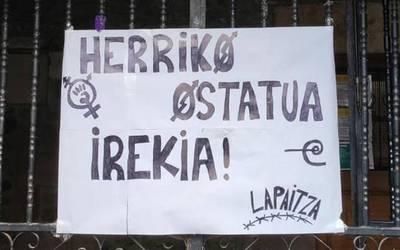 HERRIKØ
ØSTATUA
IREKIA!
LAPAITZA